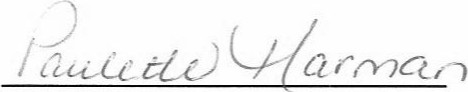 Paulette Harman